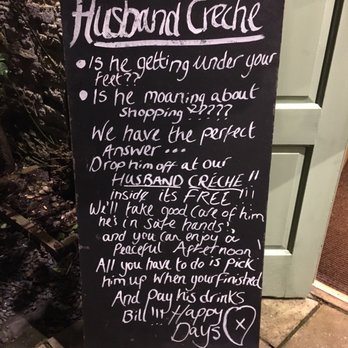 Husband Creche
• Is he getting under your
feet??
• Is he moaning about
shopping?????
We have the perfect
Answer...
Drop him off at our
HUSBAND CRÉCHE!!
inside its FREE!!!
We'll take good care of him
he's in safe hands!
and you can enjoy a
Peaceful Afternoon!
All you have to do is pick
him up when your finished
And pay his drinks
Bill!!! Happy
Days X